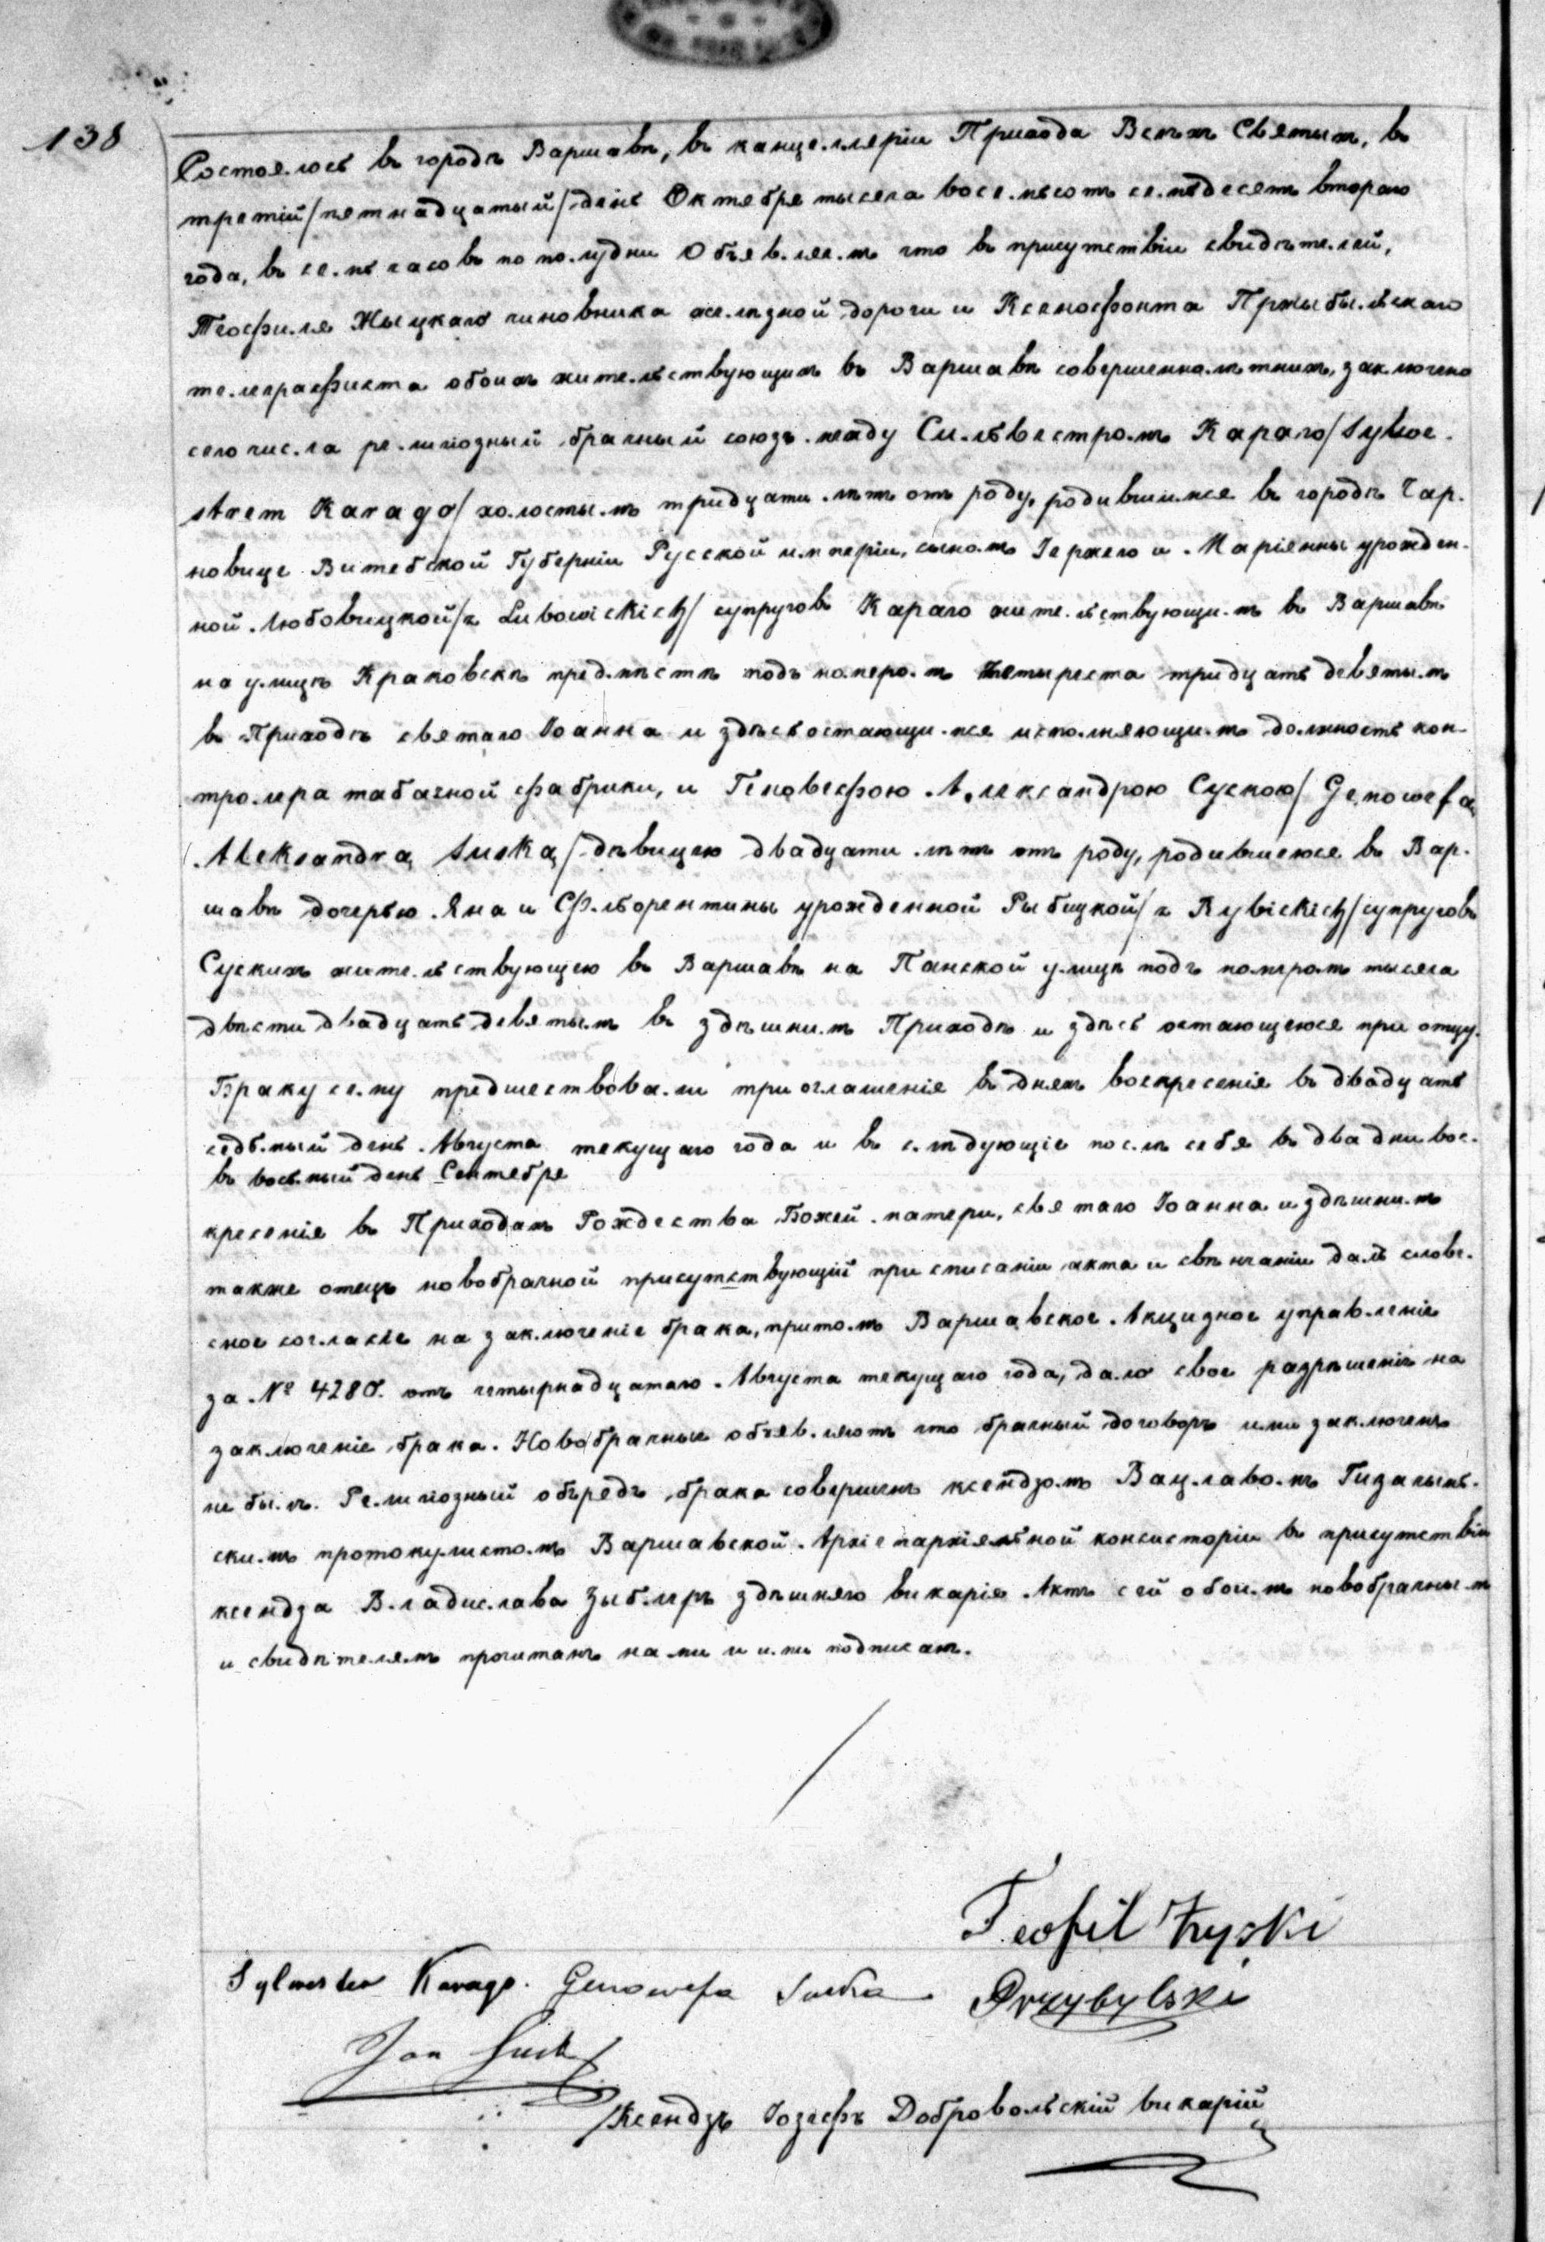 138
Состоялось въ городѣ Варшавѣ, въ канцелляріи Прихода Всѣхъ Святыхъ, въ
третій/пятнадцатый/день Октября тысяча восемьсотъ семьдесятъ втораго
года, въ семь часовъ по полудни Объявляемъ что въ присутствіи свидѣтелей,
Теофиля Жыцкаго чиновника желѣзной дороги и Ксенофонта Пржыбыльскаго
телеграфиста обоихъ жительствующихъ въ Варшавѣ совершеннолѣтнихъ, заключено
сего числа религіозный брачный союзъ между Сильвестромъ Караго/Sylwe-
strem Karago/холостымъ тридцати лѣтъ отъ роду, родившимся въ городѣ Чар-
новице Витебской Губерніи Русской имперіи, сыномъ Іержего и Маріянны урожден-
ной Любовицкой/z Lubowickich/супруговъ Караго жительствующимъ въ Варшавѣ
на улицѣ Краковскѣ предмѣстѣ подъ номеромъ четыреста тридцать девятымъ
въ Приходѣ святаго Іоанна и здѣсь остающимся исполняющимъ должность кон-
тролера табачной фабрики, и Геновефою Александрою Сускою/Genowefą
Aleksandrą Suską/дѣвицею двадцати лѣтъ отъ роду, родившеюся въ Вар-
шавѣ дочерью Яна и Флѣорентины урожденной Рыбицкой/z Rybickich/супруговъ
Сускихъ жительствующею въ Варшавѣ на Панской улицѣ подъ номеромъ тысяча
двѣсти двадцать девятымъ въ здѣшнимъ Приходѣ и здѣсь остающеюся при отцу.
Браку сему предшествовали три оглашенія въ дняхъ воскресенія въ двадцать
седьмый день Августа текущаго года и въ слѣдующіе послѣ себя въ два дни вос-
въ восьмый день Сентебря
кресенія въ Приходахъ Рождества Божей матери, святаго Іоанна и здѣшнимъ
также отецъ новобрачной присутствующій при списаніи акта и свѣнчаніи далъ слове-
сное согласіе на заключеніе брака, притомъ Варшавское Акцизное управленіе
за № 4280. отъ четырнадцатаго Августа текущаго года, дало свое разрѣшеніе на
заключеніе брака. Новобрачные объявляютъ что брачный договоръ ими заключенъ
не былъ. Религіозный объредъ брака совершенъ ксендзомъ Вацлавомъ
скимъ протокулистомъ Варшавской Архіепархіяльной консисторіи въ присутствіи
ксендза Владислава Зыблеръ здѣшняго викарія Актъ сей обоимъ новобрачнымъ
и свидѣтелямъ прочитанъ нами и ими подписанъ.
Teofil Żyski
Sylwester Karago. Genowefa Suska Przybylski
Jan Suski
Ксендзъ Іозефъ Добровольскій викарій